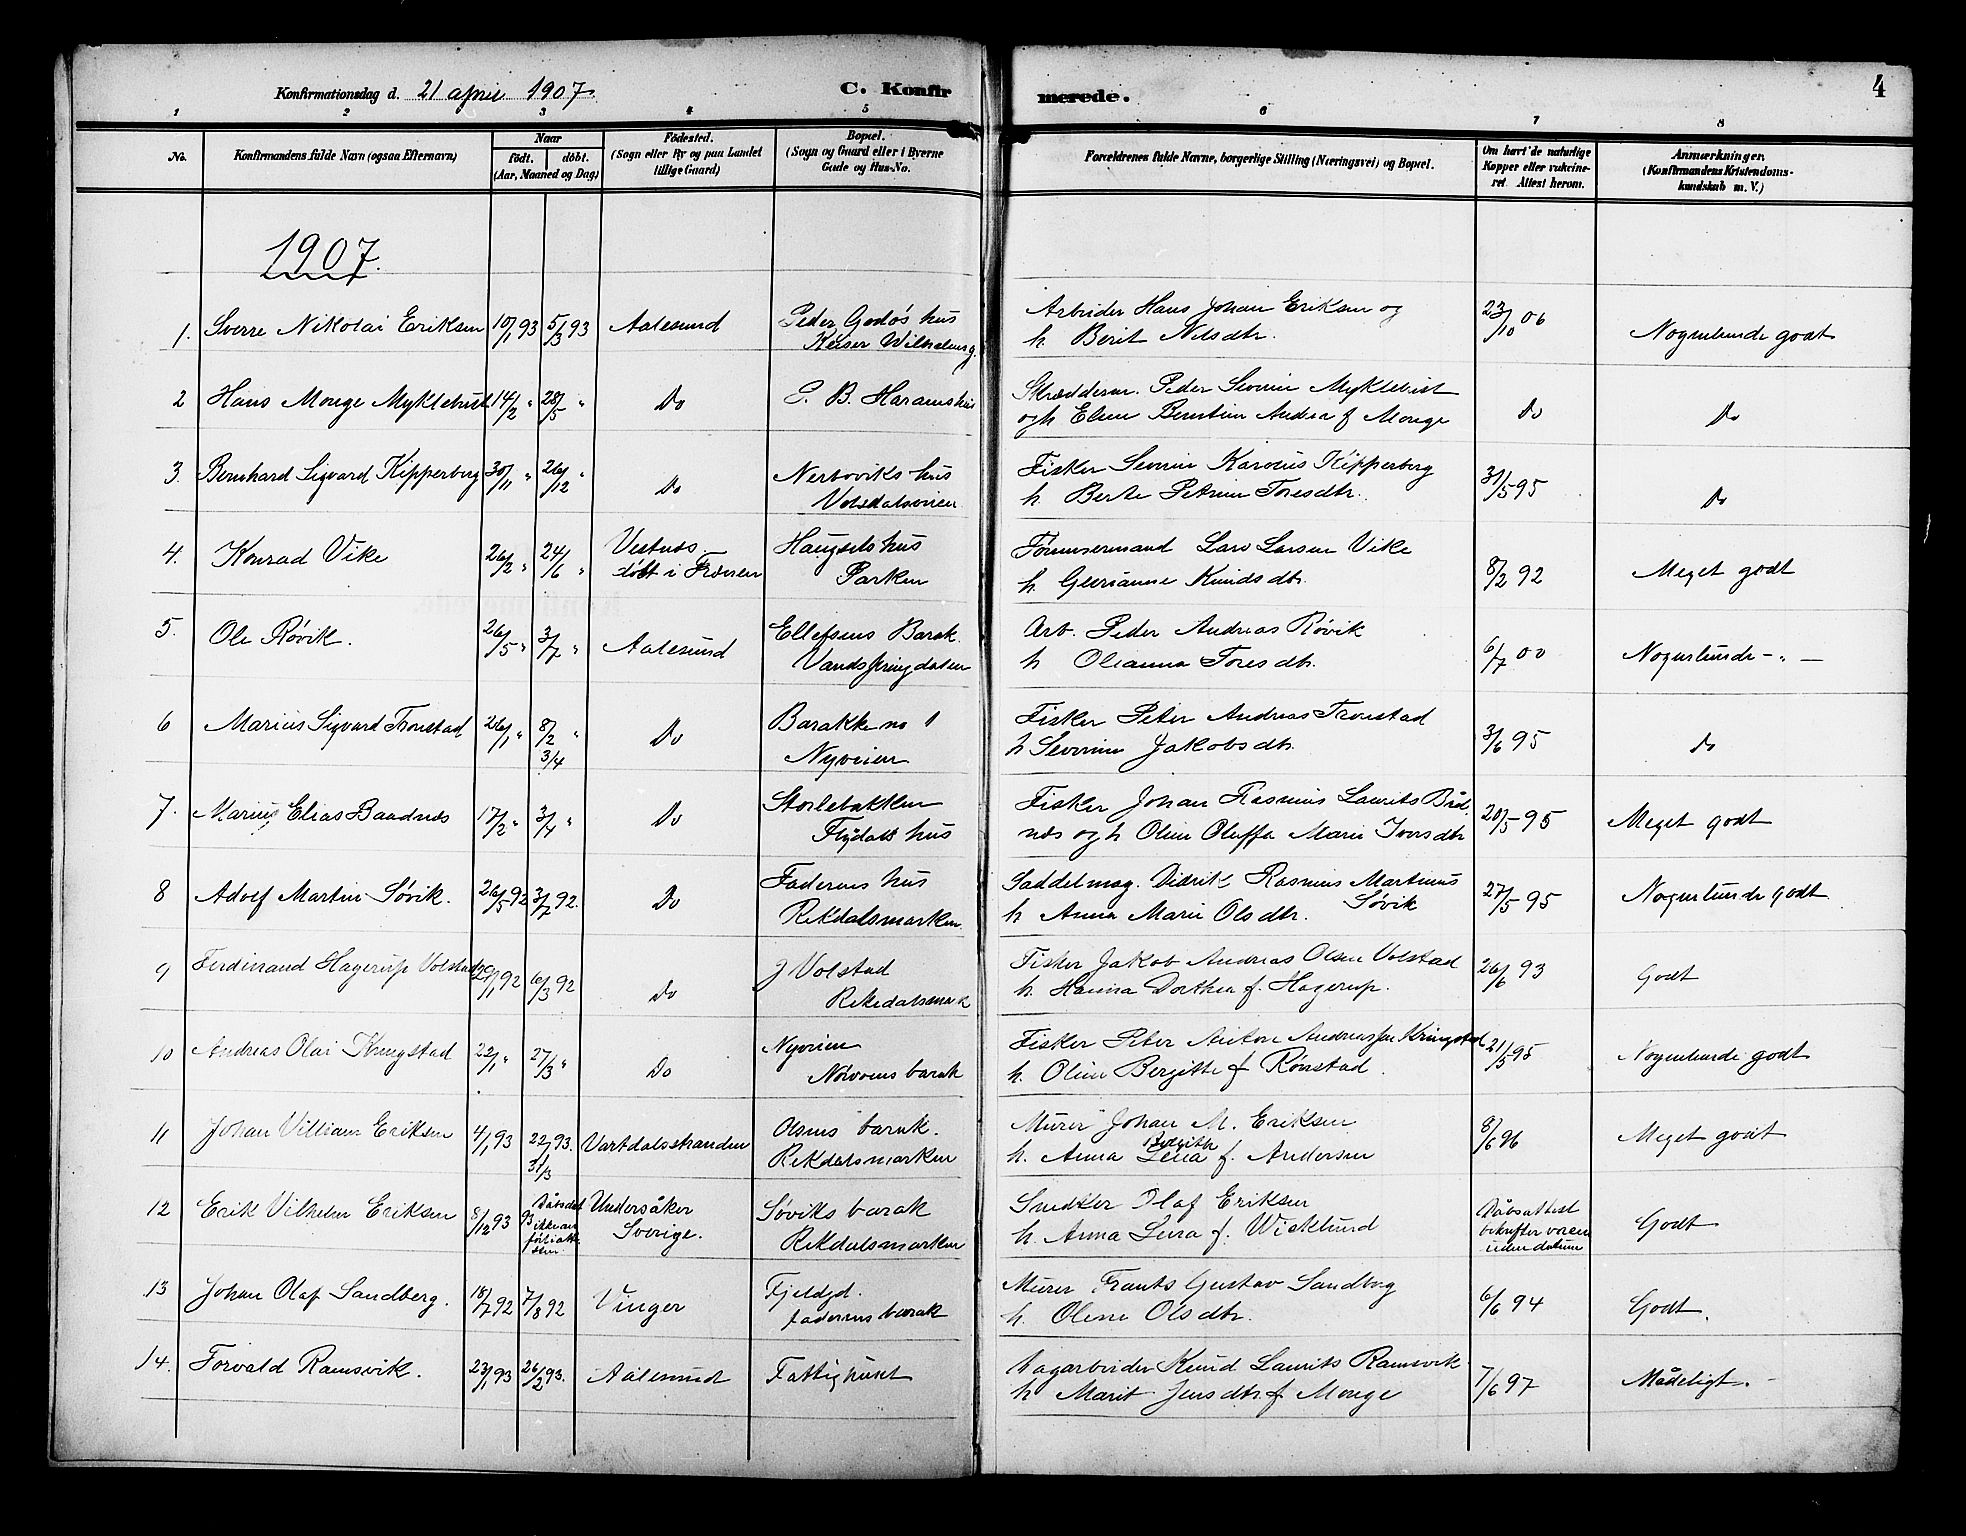 Konfirmationsdag d. 21 april 1907. C. Konfirmerede. 4
1 2 3 4 5 6 7 8
No. Konfirmandens fulde Navn (ogsaa Efternavn) Naar födt. döbt. (Aar, Maaned og Dag) Födested. (Sogn eller By og paa Landet tillige Gaard) Bopæl. (Sogn og Gaard eller i Byerne Gade og Hus-No. Forældrenes fulde Navne, borgerlige Stilling (Næringsvei) og Bopæl. Om havt de naturlige Kopper eller vakcineret. Attest herom. Anmærkninger. (Konfirmandens Kristendomskundskab m. V.)
1907.
1. Sverre Nikolai Eriksen 10/1 93 5/3 93 Aalesund Peder Godøs hus Arbeider Hans Johan Eriksen og 23/10 06 Nogenlunde godt
Keiser Wilhelmsg. h. Berit Nilsdtr.
2 Hans Monge Myklebust 14/2 " 28/5 " Do P. B. Harams hus Skræddersv. Peder Severin Myklebust Do Do
og h Elen Bernstine Andrea f Monge
3. Bernhard Sigvard Kipperberg 30/11 " 26/12 " Do Nerbøviks hus Fisker Severin Karolius Kipperberg 31/5 95 Do
Volsdalsveien h. Berte Petrine Toresdtr.
4. Konrad Vike 26/2 " 24/6 " Vestnes. Haugsets hus Lars Larsen Vike 8/2 92 Meget godt
døbt i Frænen Parken h. Knudsdtr.
5. Ole Røvik. 26/5 " 3/7 " Aalesund Ellefsens Barak. Arb. Peder Andreas Røvik 6/7 00 Nogenlunde -"-
Vandspringdalen h Olianna Toresdtr.
6 Marius Sigvard Tronstad 26/1 " 8/2 3/4 " Do Barakke no 1 Fisker Peter Andreas Tronstad 3/6 95 Do
Nyveien h Severine Jakobsdtr.
7. Marius Elias Baadnes 17/2 " 3/4 " Do Storlebakken Fisker Johan Rasmus Laurits Båd- 20/5 95 Meget godt
Flydals hus næs og h Oline Oluffa Marie Iversdtr
8 Adolf Martin Søvik. 26/5 92 3/7 92. Do Faderens hus Saddelmag. Didrik Rasmus Martinus Søvik 27/5 95 Nogenlunde godt
Rekdalsmarken. h Anna Marie Olsdtr.
9 Ferdinand Hagerup Volstad 29/1 92 6/3 92 Do J Volstad Fisker Jakob Andreas Olsen Volstad 26/6 93 Godt
Rekedalsmark h. Hanna Dorthea f. Hagerup.
10 Andreas Olai Kringstad 22/1 " 27/3 " Do Nyveien Fisker Peter Anton Andreassen Kringstad 21/5 95 Nogenlunde godt
Norvens barak h. Oline Bergitte f Rønstad.
11 Johan Villiam Eriksen 4/1 93 22/1 93. 31/3 Vartdalsstranden Olsens barak. Murer Johan M. Eriksen 8/6 96 Meget godt
Rekdalsmarken h. Anna Lena Bergith f. Andersen
12 Erik Vilhelm Eriksen 8/12 93 Dåbsdat. 93 ikke anført i attesten Undersåker Søviks barak Snedker Olaf Eriksen Dåbsattest Godt
Sverige. Rekdalsmarken h. Anna Lena f. Wicklund bekræfter vaccin uden datum
13 Johan Olaf Sandberg. 18/7 92 7/8 92 Vinger Fjeldgd. Murer Frants Gustav Sandberg 6/6 94 Godt.
faderens barak h. Oline Olsdtr.
14. Torvald Ramsvik. 23/1 93 26/2 93. Aalesund Fattighuset Dagarbeider Knud Laurits Ramsvik 7/6 97 Mådeligt.
h Marit Jensdtr f. Monge